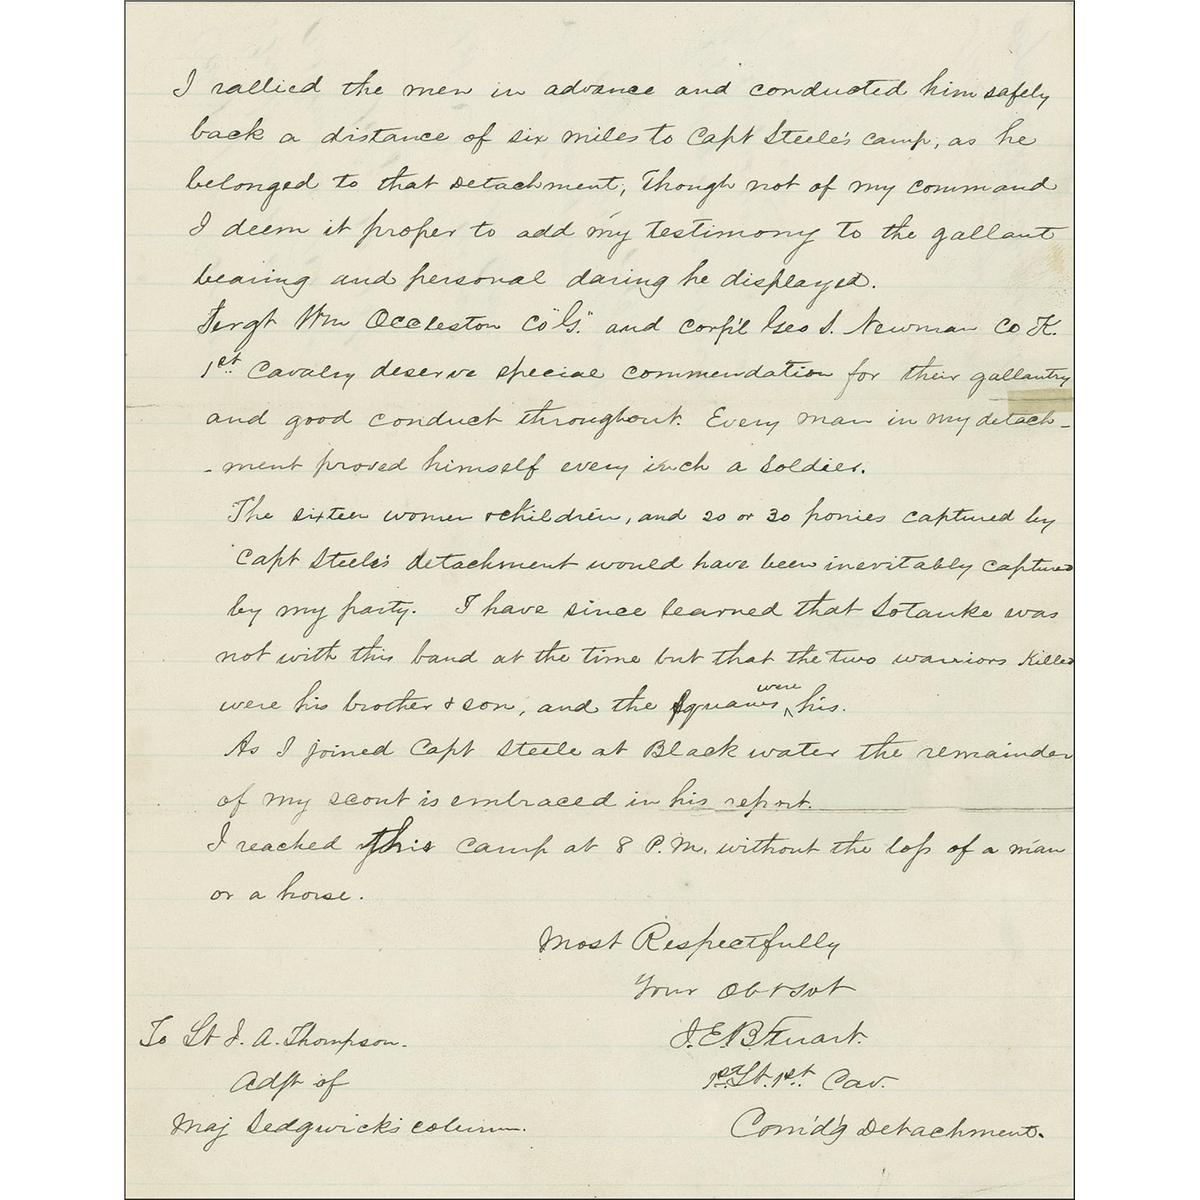 I rallied the men in advance and conducted him safely
back a distance of six miles to Capt Steele's camp, as he
belonged to that detachment, Though not of my command
I deem it proper to add my testimony to the gallant
bearing and personal daring he displayed.
Sergt Wm Occleston Co "G." and corp'l Geo S. Newman Co K.
1st Cavalry deserve special commendation for their gallantry
and good conduct throughout. Every man in my detach-
-ment proved himself every inch a soldier.
The sixteen women & children, and 20 or 30 ponies captured by
Capt Steele's detachment would have been inevitably captured
by my party. I have since learned that Sotanke was
not with this band at the time but that the two warriors killed
were his brother & son, and the squaws were his.
As I joined Capt Steele at Black water the remainder
of my scout is embraced in his report.
I reached this camp at 8 P.M. without the loss of a man
or a horse.
Most Respectfully
Your Obt Svt
J.E.B. Stuart.
1st Lt. 1st. Cav.
Com'd'g Detachment.
To Lt J. A. Thompson.
Adjt of
Maj Sedgwick's column.